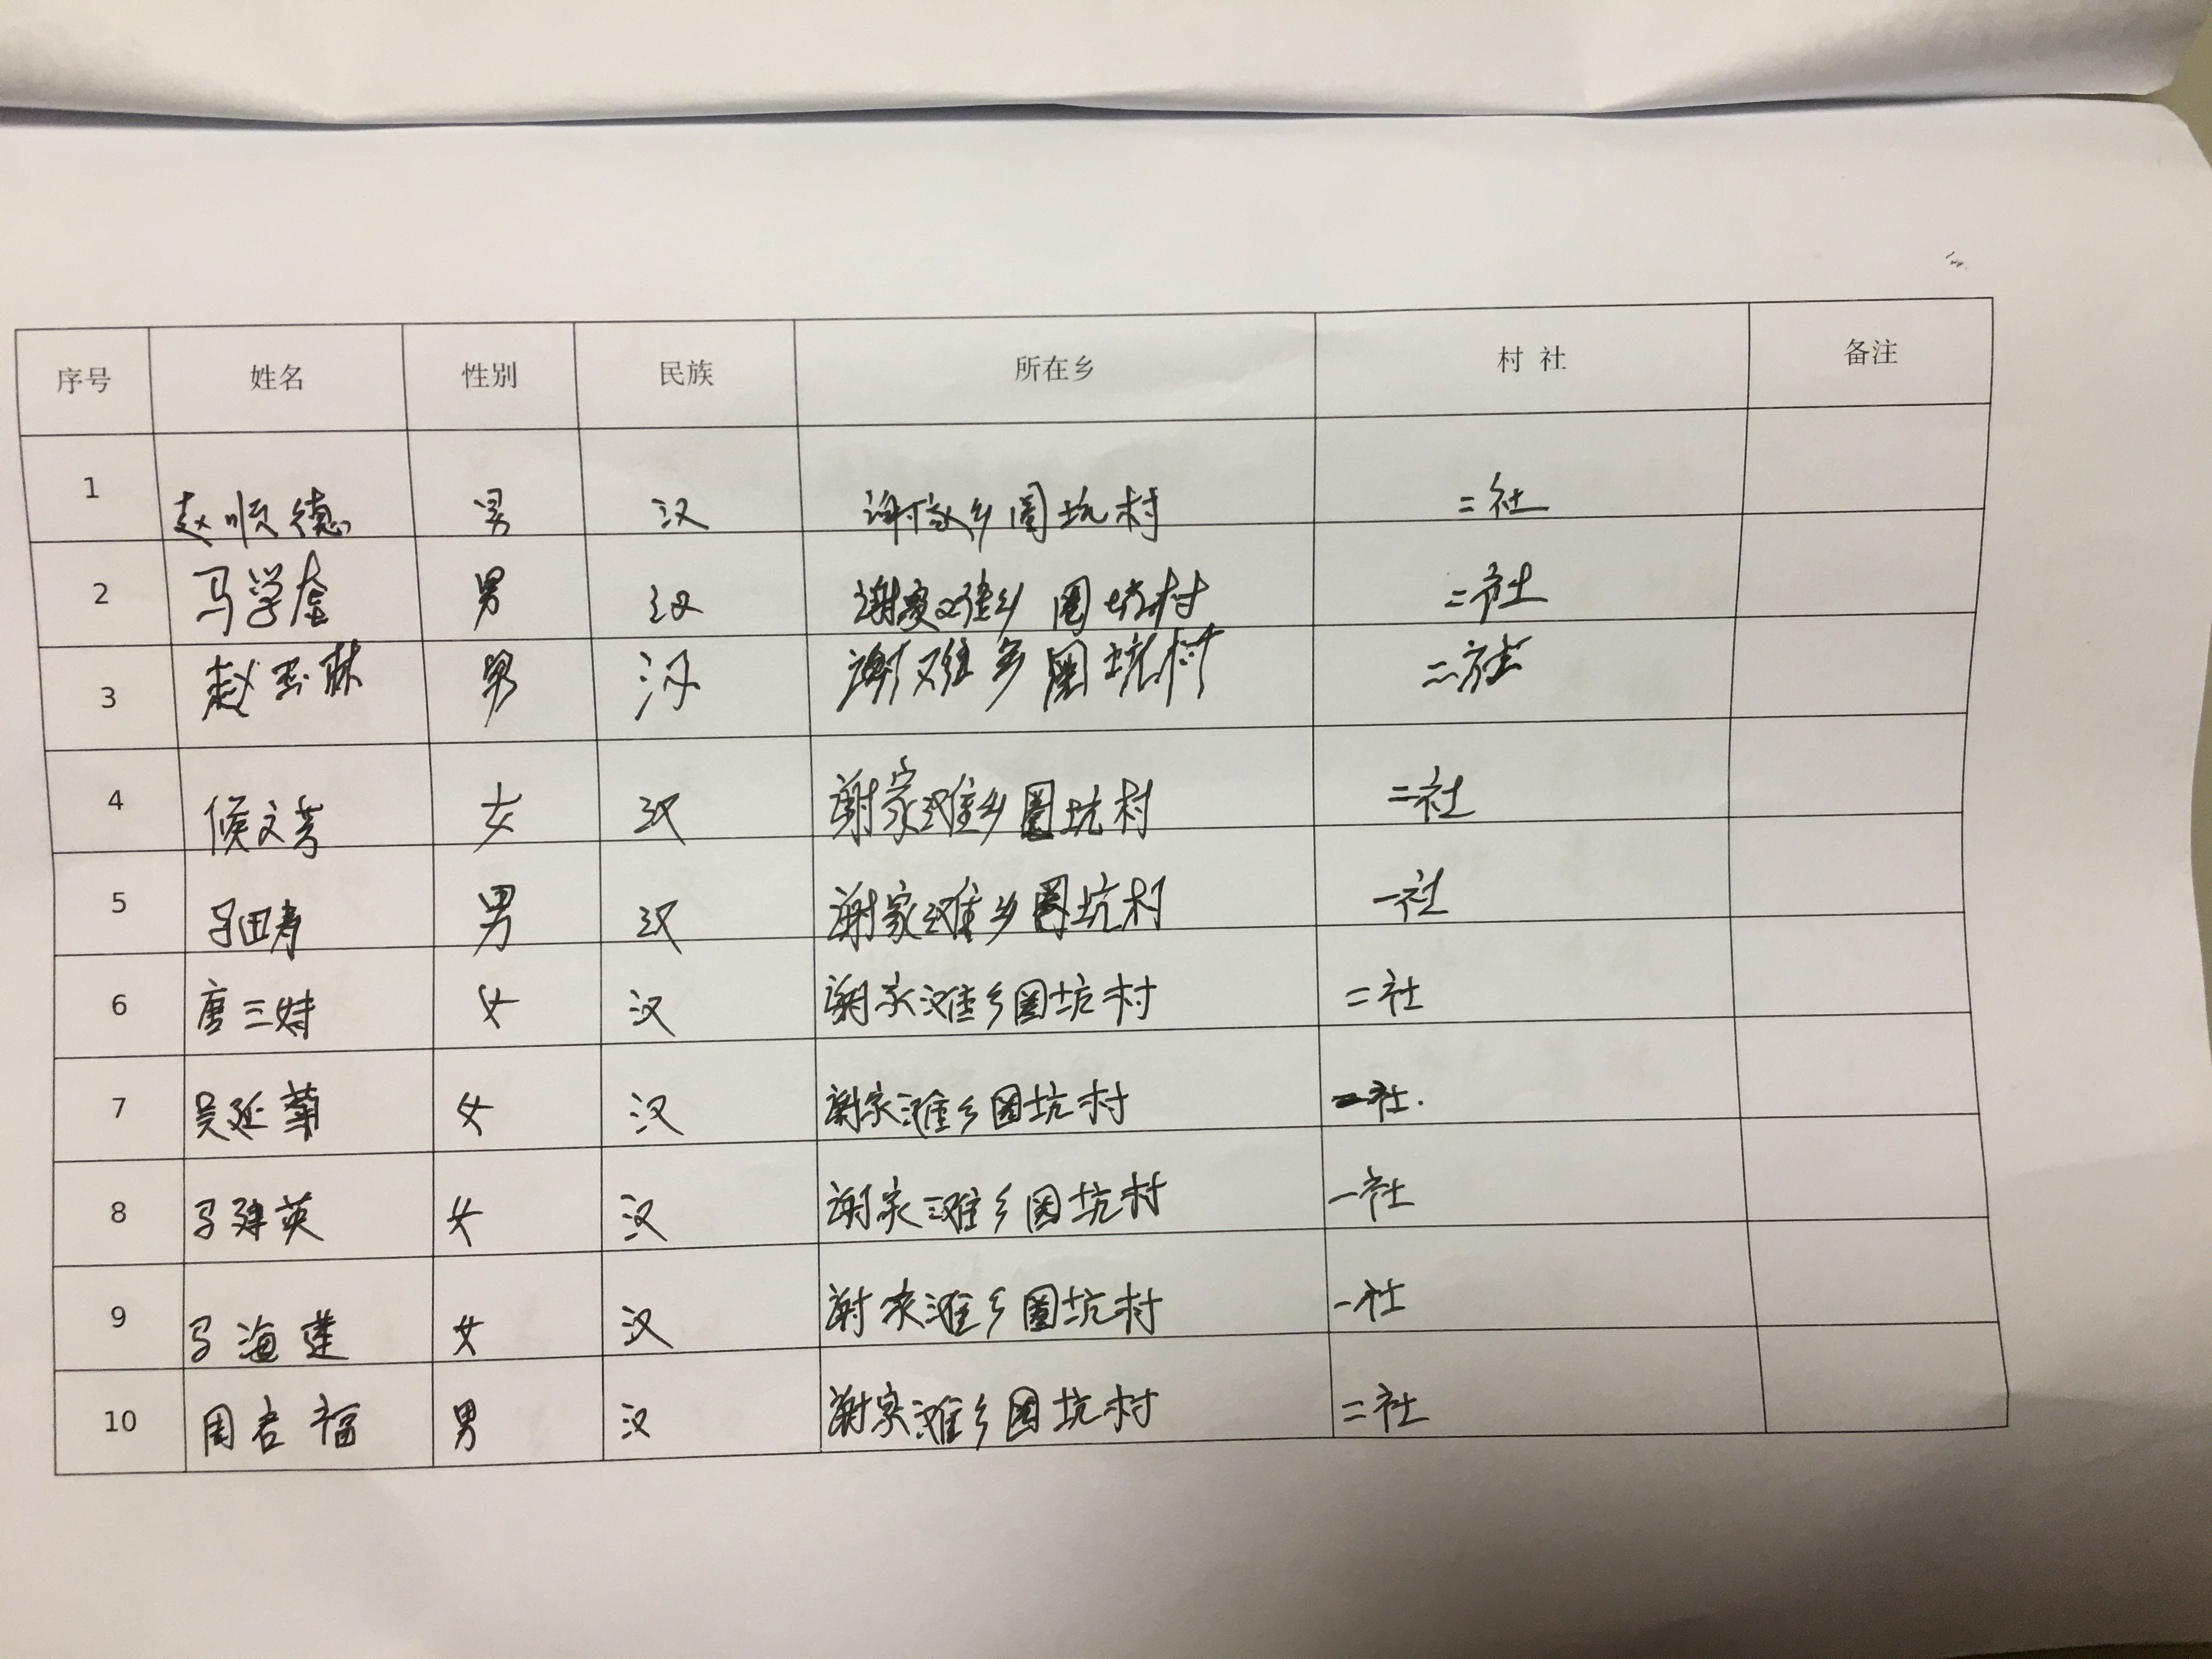 序号 姓名 性别 民族 所在乡 村 社 备注
1 赵顺德 男 汉 谢家乡圈坑村 二社
2 马学奎 男 汉 谢家滩乡圈坑村 二社
3 赵玉琳 男 汉 谢滩乡圈坑村 二社
4 侯文芳 女 汉 谢家滩乡圈坑村 二社
5 马田寿 男 汉 谢家滩乡圈坑村 一社
6 唐三娃 女 汉 谢家滩乡圈坑村 二社
7 吴延菊 女 汉 谢家滩乡圈坑村 社.
8 马建英 女 汉 谢家滩乡圈坑村 一社
9 马海莲 女 汉 谢家滩乡圈坑村 一社
10 周吉福 男 汉 谢家滩乡圈坑村 二社